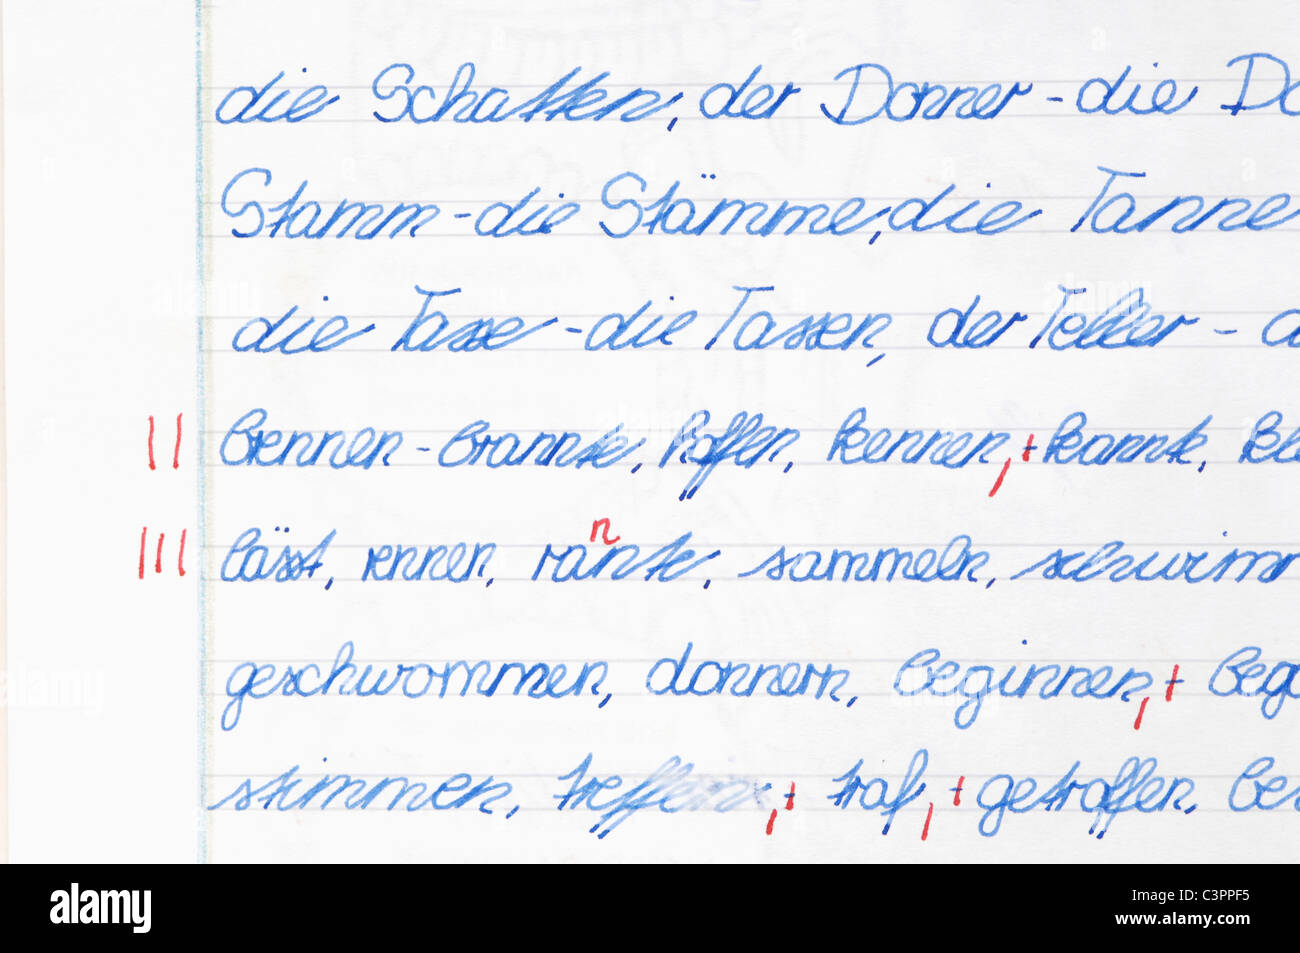 die Schatten, der Donner - die Do
Stamm - die Stämme, die Tanne
die Tasse - die Tassen, der Teller - d
II brennen - brannte, hoffen, kennen, - kannte,
III lässt, rennen, rannte, sammeln, schwimm
geschwommen, donnern, beginnen, - bego
stimmen, treffen, - traf, - getroffen, be
alamy
Image ID: C3PPF5
www.alamy.com